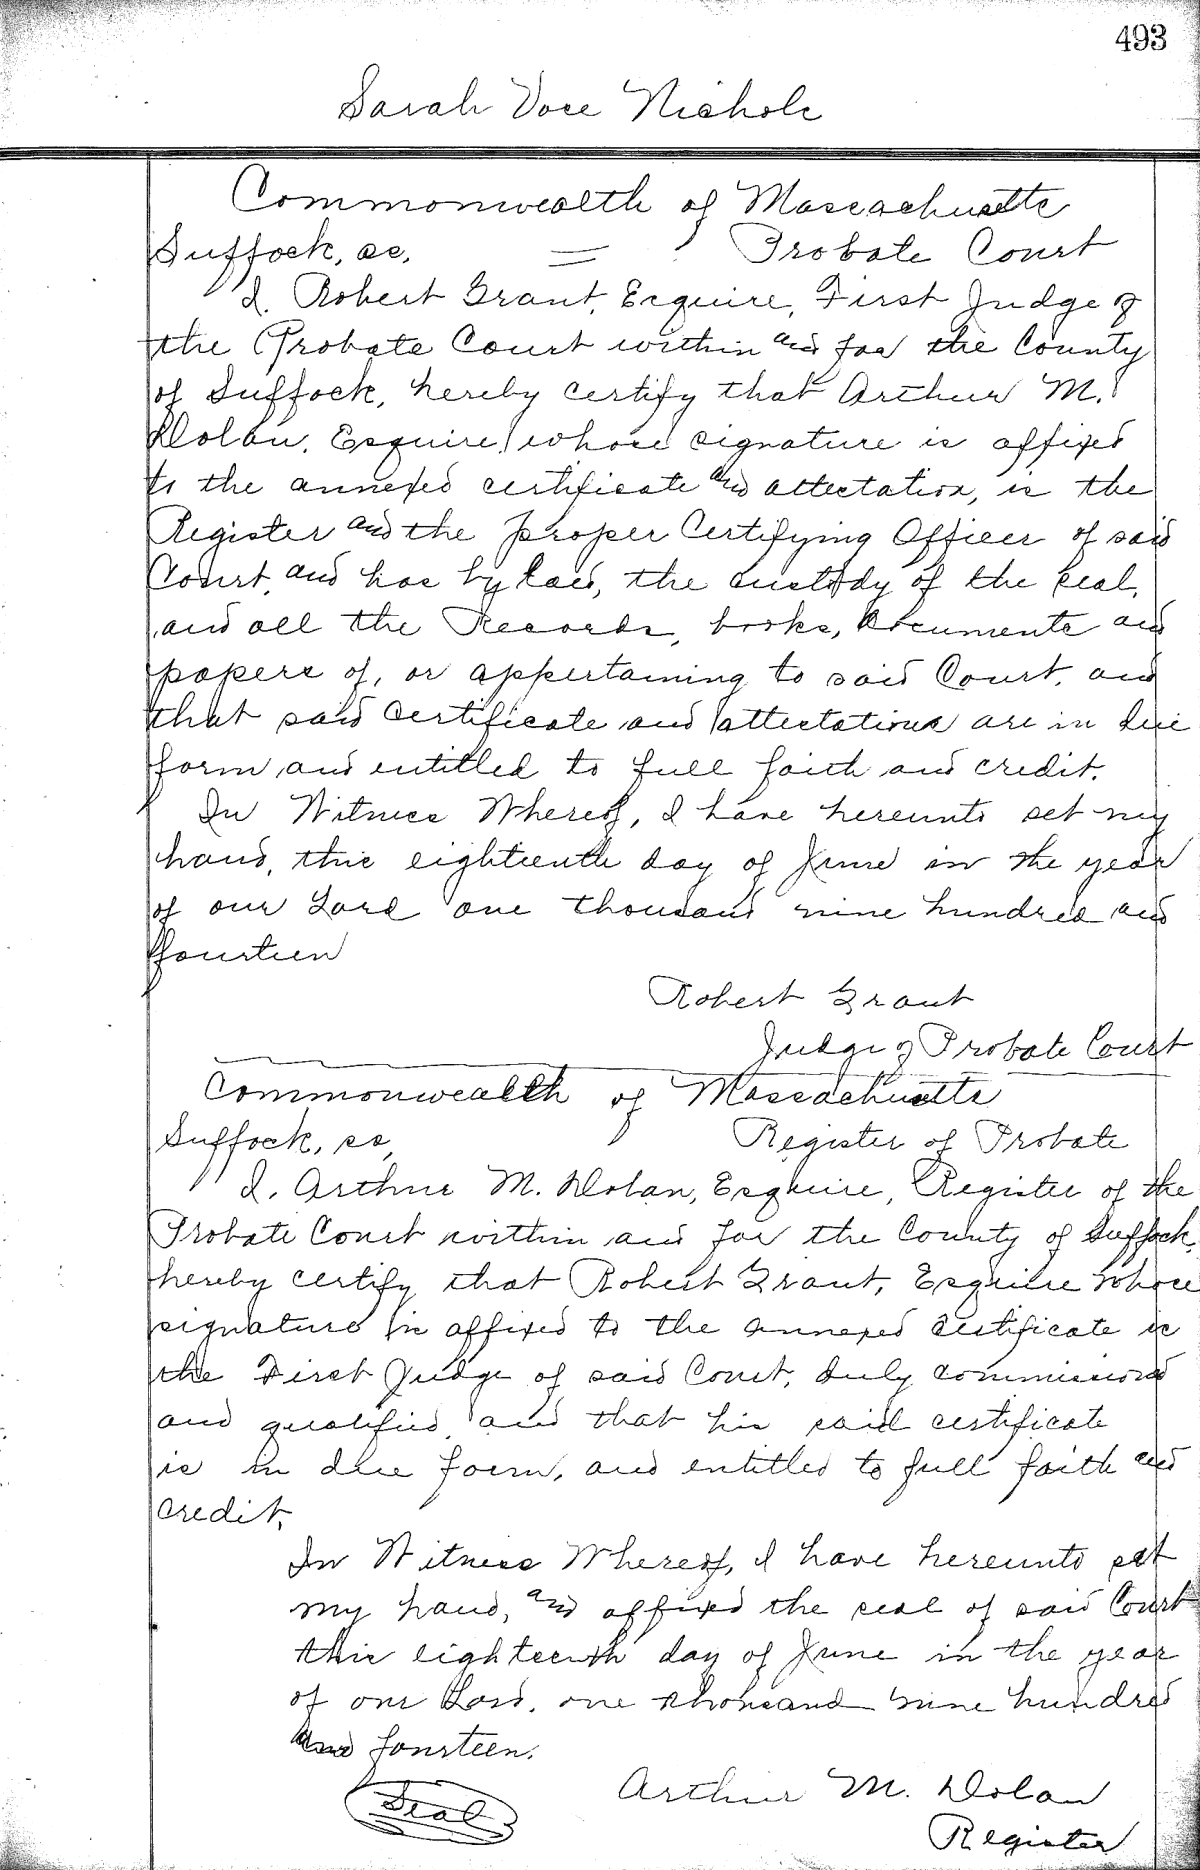 493
Sarah Vose Nichols
Commonwealth of Massachusetts
Suffock, ss. = Probate Court
I, Robert Grant, Esquire, First Judge of
the Probate Court within and for the County
of Suffock, hereby certify that Arthur M.
Dolan, Esquire, whose signature is affixed
to the annexed certificate and attestation, is the
Register and the proper Certifying Officer of said
Court, and has by law, the custody of the seal,
and all the Records, books, documents and
papers of, or appertaining to said Court, and
that said certificate and attestations are in due
form and entitled to full faith and credit.
In Witness Whereof, I have hereunto set my
hand, this eighteenth day of June in the year
of our Lord one thousand nine hundred and
fourteen
Robert Grant
Judge of Probate Court
Commonwealth of Massachusetts
Suffock, ss, Register of Probate
I, Arthur M. Dolan, Esquire, Register of the
Probate Court within and for the County of Suffock,
hereby certify that Robert Grant, Esquire whose
signature is affixed to the annexed certificate is
the First Judge of said Court, duly commissioned
and qualified, and that his said certificate
is in due form, and entitled to full faith and
credit,
In Witness Whereof, I have hereunto set
my hand, and affixed the seal of said Court
this eighteenth day of June in the year
of our Lord, one thousand nine hundred
and fourteen.
Seal Arthur M. Dolan
Register